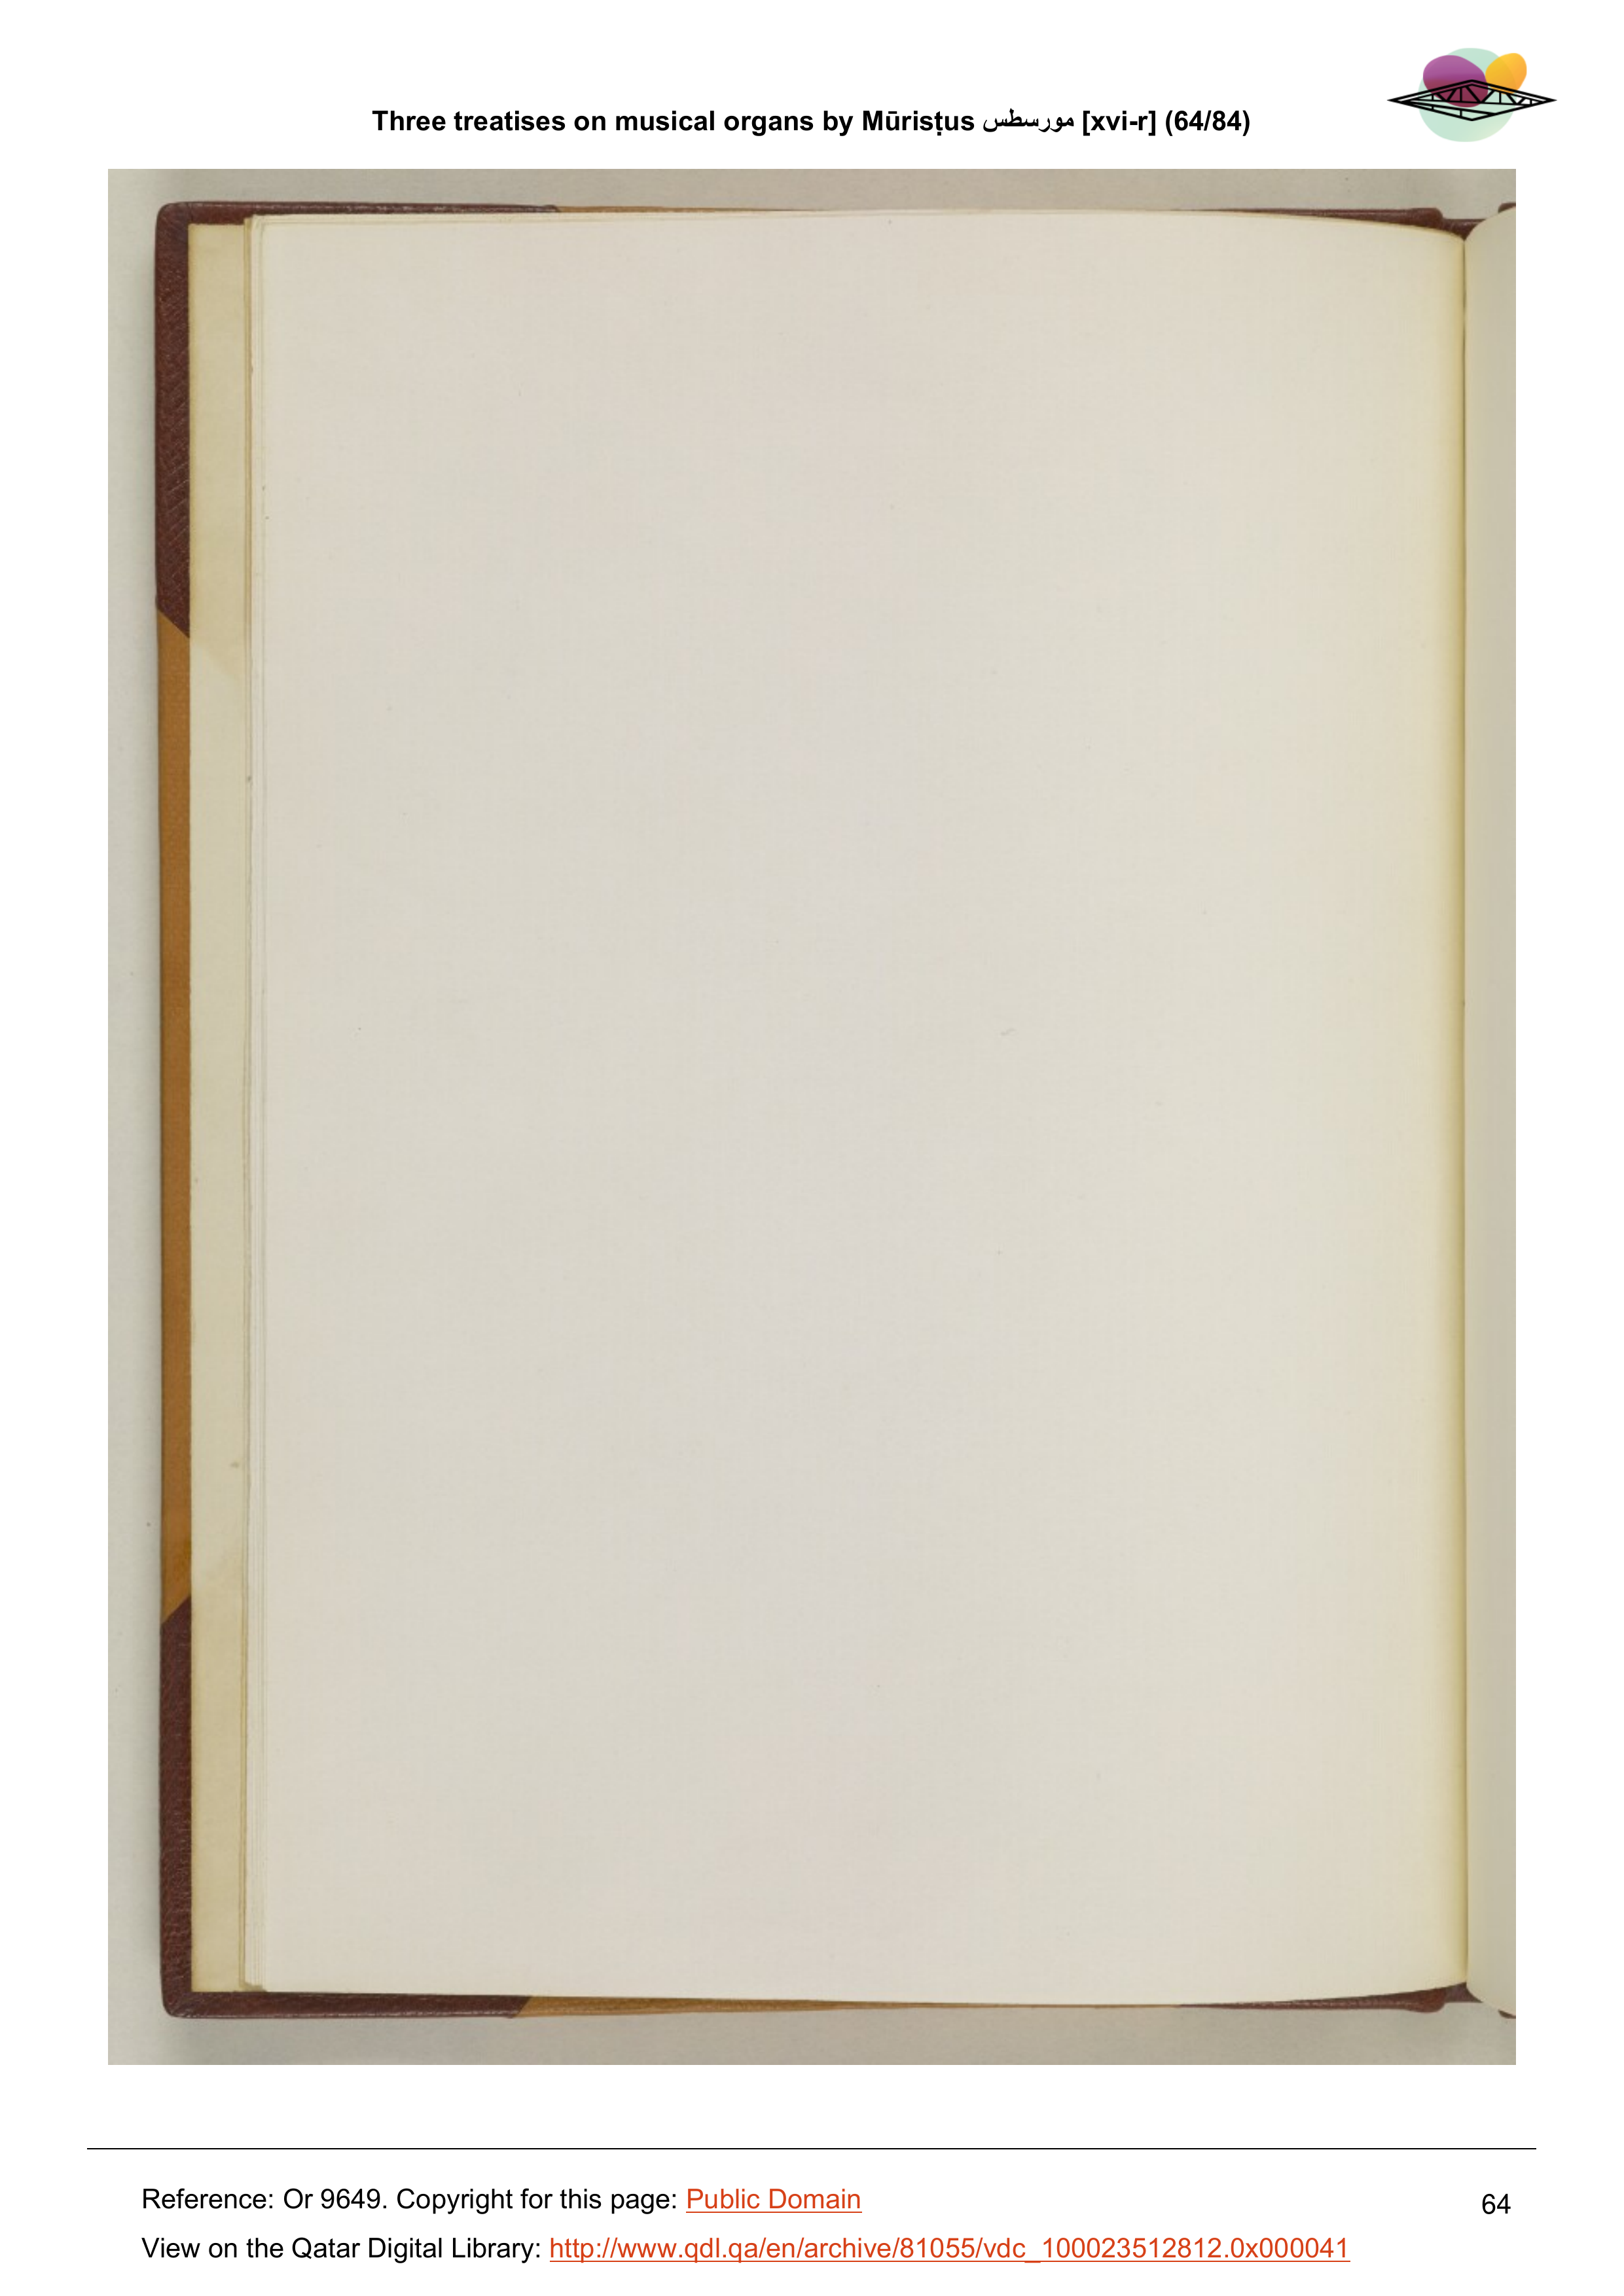 Three treatises on musical organs by Mūrisṭus مورسطس [xvi-r] (64/84)
Reference: Or 9649. Copyright for this page: Public Domain
64
View on the Qatar Digital Library: http://www.qdl.qa/en/archive/81055/vdc_100023512812.0x000041